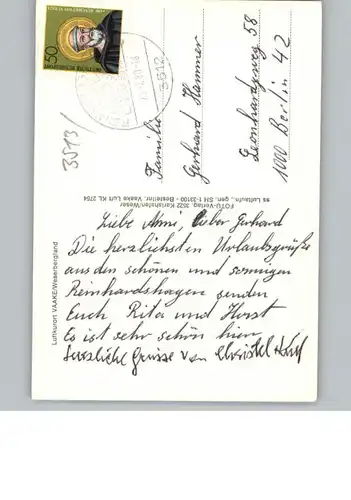 Luftkurort VAAKE/Weserbergland
FOTU-Verlag, 3522 Karlshafen/Weser
Bestellnr. Vaake Luft KL 2754
50
3512
3513/
Familie
Gerhard Hammer
Leonhardyweg 58
1000 Berlin 42
Liebe Mimi, lieber Gerhard
Die herzlichsten Urlaubsgrüße
aus den schönen und sonnigen
Reinhardshagen senden
Euch Rita und Horst
Es ist sehr schön hier
herzliche Grüsse von Christel